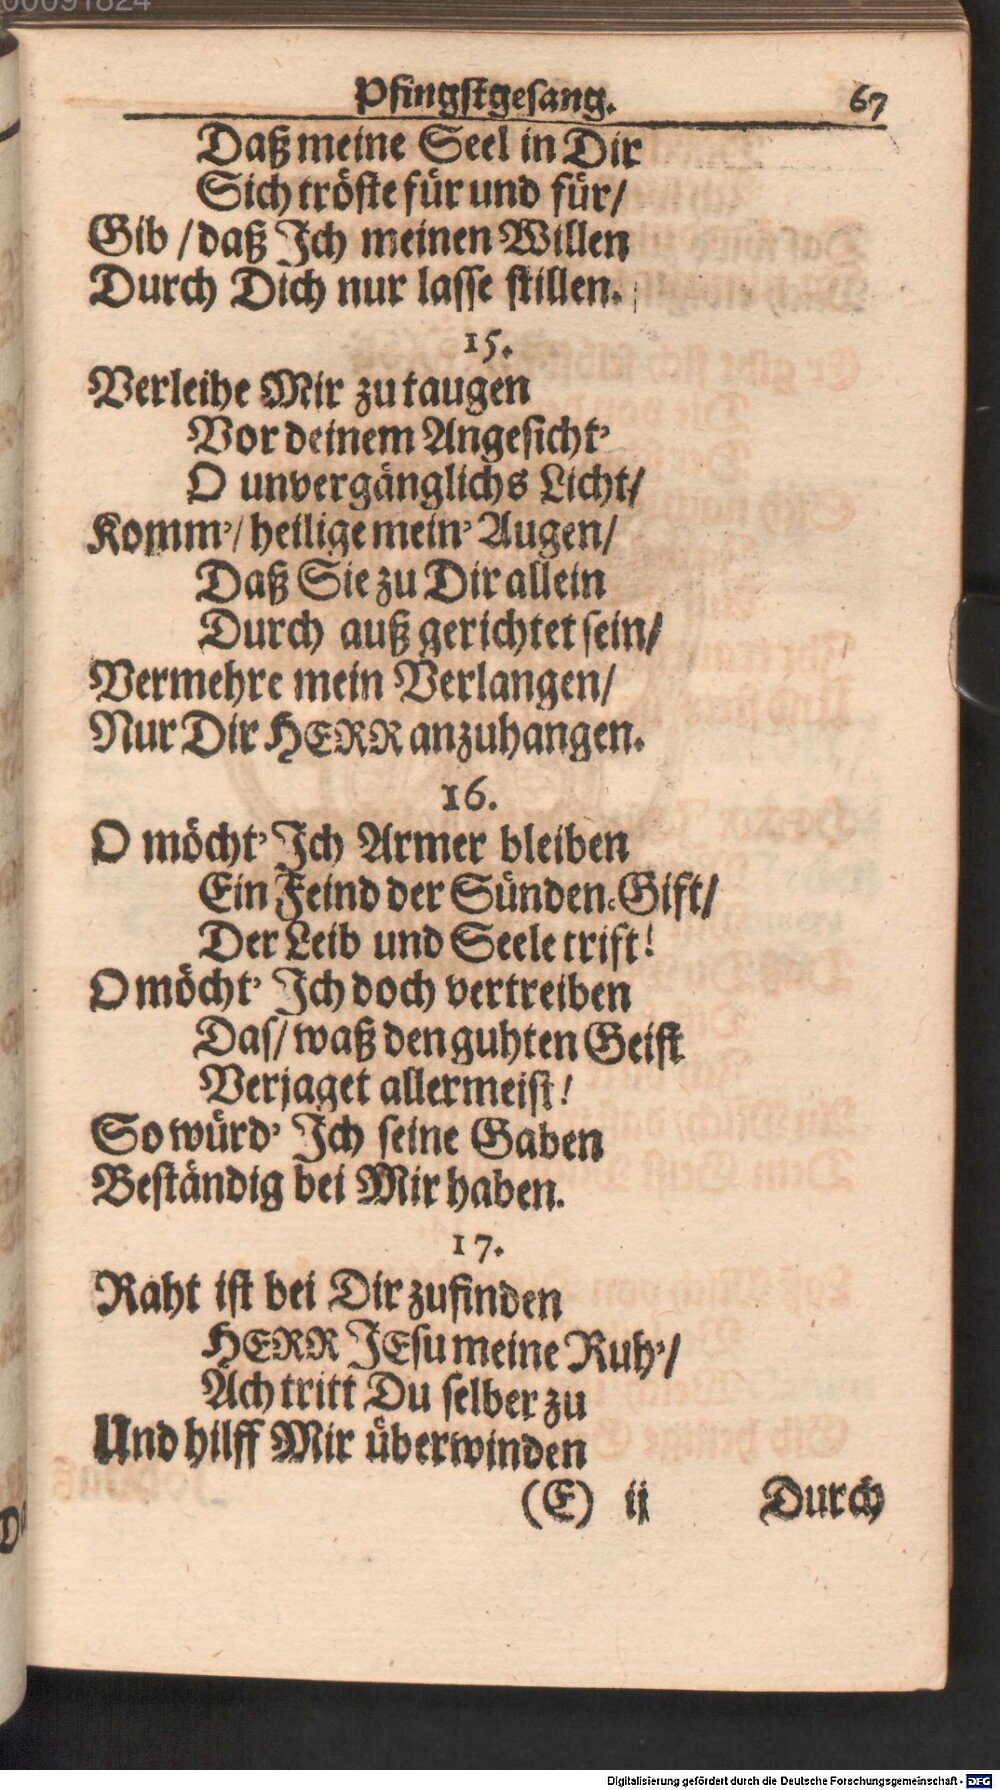 Pfingstgesang. 67
Daß meine Seel in Dir
Sich tröste für und für/
Gib / daß Ich meinen Willen
Durch Dich nur lasse stillen.
15.
Verleihe Mir zu taugen
Vor deinem Angesicht'
O unvergänglichs Licht/
Komm'/ heilige mein' Augen/
Daß Sie zu Dir allein
Durch auß gerichtet sein/
Vermehre mein Verlangen/
Nur Dir HERR anzuhangen.
16.
O möcht' Ich Armer bleiben
Ein Feind der Sünden-Gift/
Der Leib und Seele trift!
O möcht' Ich doch vertreiben
Das/ waß den guhten Geist
Verjaget allermeist!
So würd' Ich seine Gaben
Beständig bei Mir haben.
17.
Raht ist bei Dir zufinden
HERR JEsu meine Ruh'/
Ach tritt Du selber zu
Und hilff Mir überwinden
(E) ij Durch
Digitalisierung gefördert durch die Deutsche Forschungsgemeinschaft - DFG